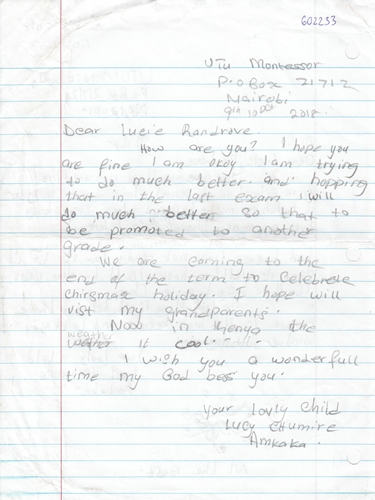 602233
Utu Montessor
P.o Box 21712
Nairobi
9th 10 2018.
Dear Lucie Randrove.
How are you? I hope you
are fine I am okay I am trying
to do much better and hopping
that in the last exam I will
do much better so that to
be promoted to another
grade.
We are coming to the
end of the term to celebrete
chirsmax holiday. I hope will
vist my grandparents.
Now in Kenya the
weather
weather it cool.
I wish you a wonderfull
time my God bes you.
Your lovly child
Lucy
Amkaka.